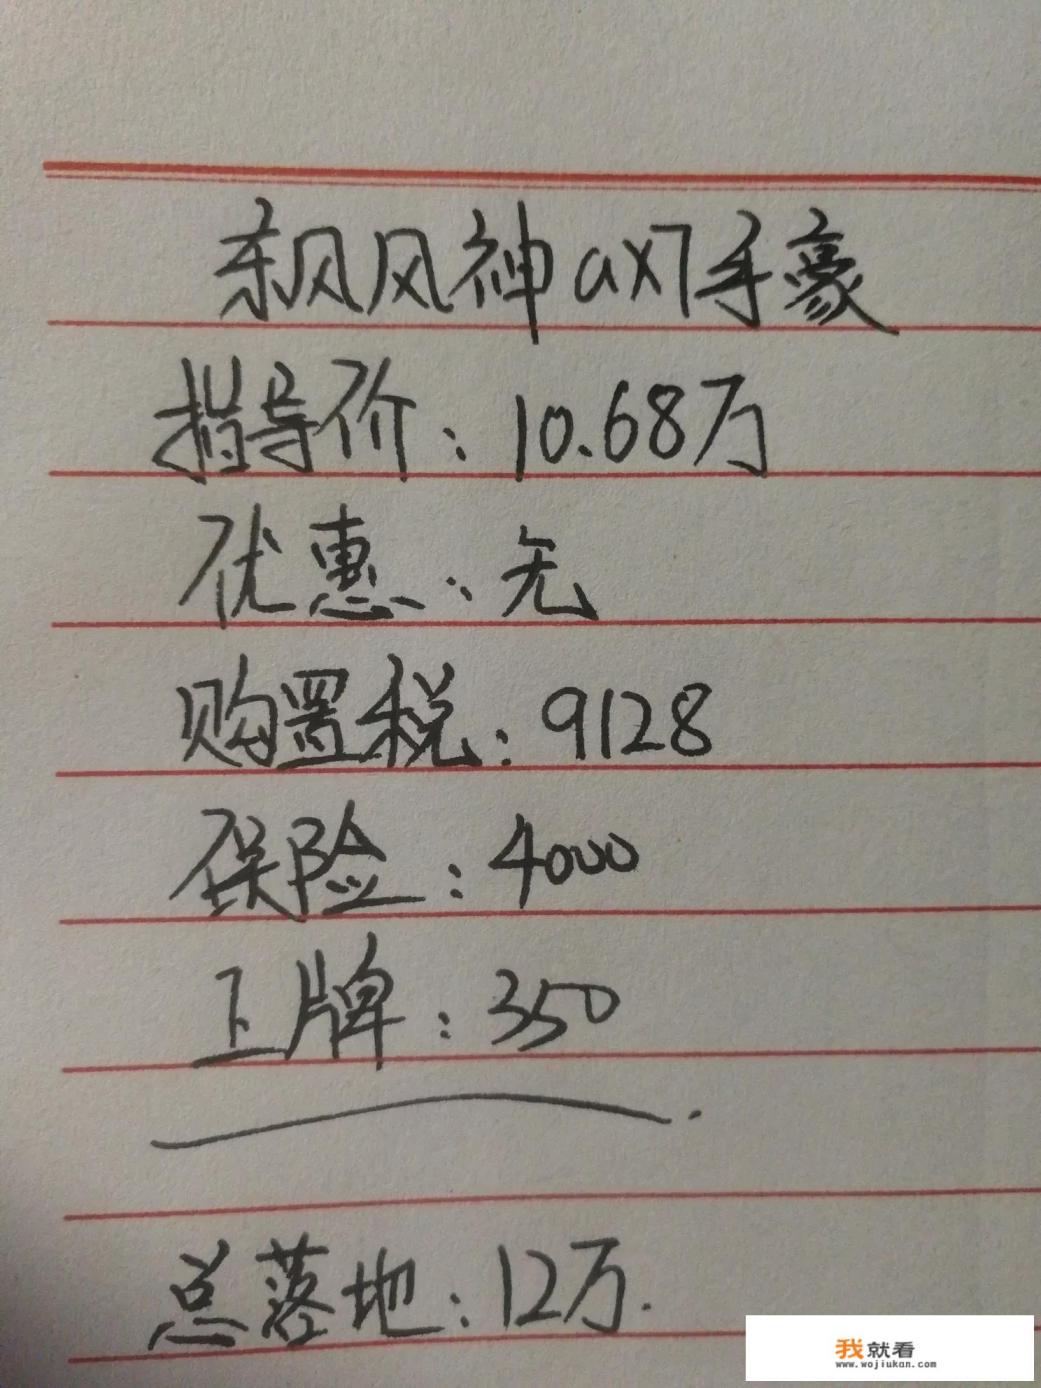 东风风神ax7手豪
指导价：10.68万
优惠：无
购置税：9128
保险：4000
上牌：350
总落地：12万.
我就看
www.wojiukan.com